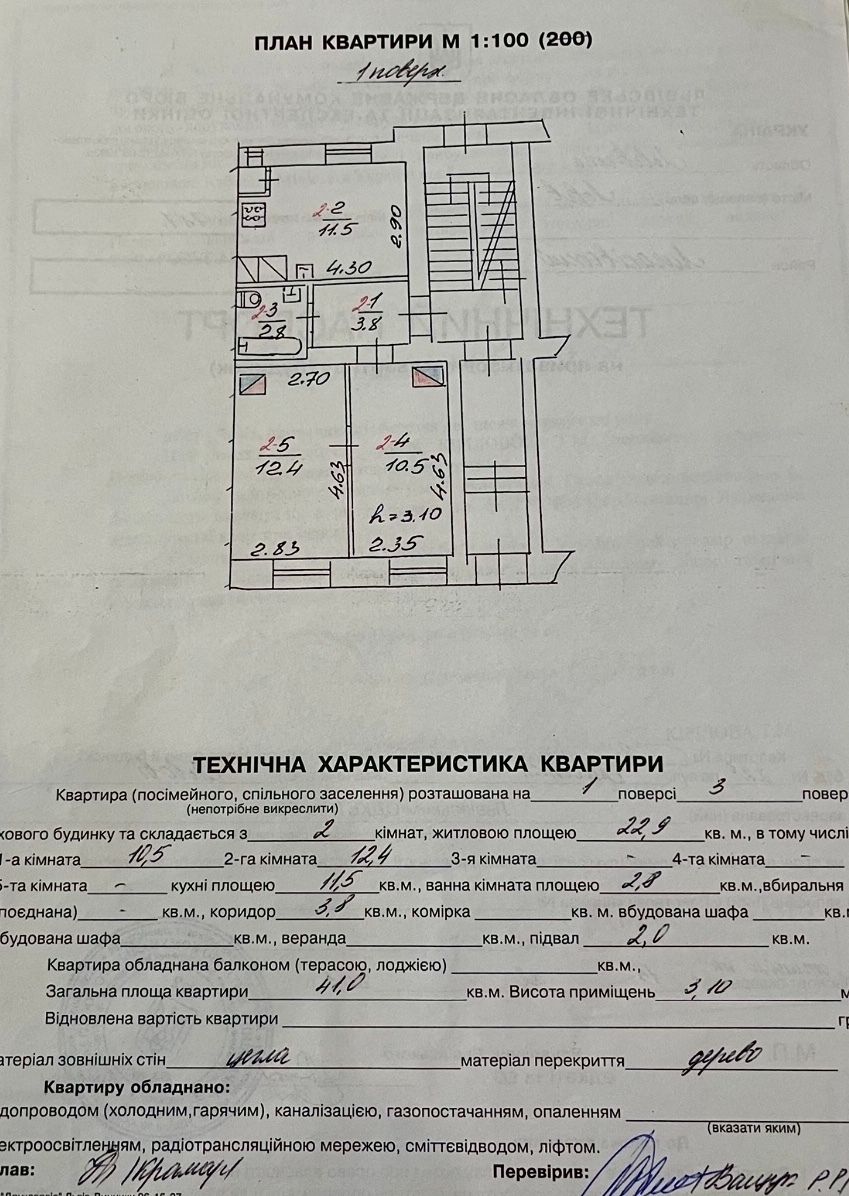 ПЛАН КВАРТИРИ М 1:100 (200)
1 поверх.
2-2
11.5
2.90
4.30
2-3
2.8
2-1
3.8
2.70
2-5
12.4
4.63
2-4
10.5
4.63
h=3.10
2.83
2.35
ТЕХНІЧНА ХАРАКТЕРИСТИКА КВАРТИРИ
Квартира (посімейного, спільного заселення) розташована на 1 поверсі 3 повер
(непотрібне викреслити)
хового будинку та складається з 2 кімнат, житловою площею 22,9 кв. м., в тому числі
1-а кімната 10,5 2-га кімната 12,4 3-я кімната - 4-та кімната -
5-та кімната - кухні площею 11,5 кв.м., ванна кімната площею 2,8 кв.м.,вбиральня
поєднана) - кв.м., коридор 3,8 кв.м., комірка кв. м. вбудована шафа кв.м
будована шафа кв.м., веранда кв.м., підвал 2,0 кв.м.
Квартира обладнана балконом (терасою, лоджією) кв.м.,
Загальна площа квартири 41,0 кв.м. Висота приміщень 3,10 м
Відновлена вартість квартири гр
атеріал зовнішніх стін цегла матеріал перекриття дерево
Квартиру обладнано:
допроводом (холодним,гарячим), каналізацією, газопостачанням, опаленням
(вказати яким)
ектроосвітленням, радіотрансляційною мережею, сміттєвідводом, ліфтом.
лав: Перевірив: